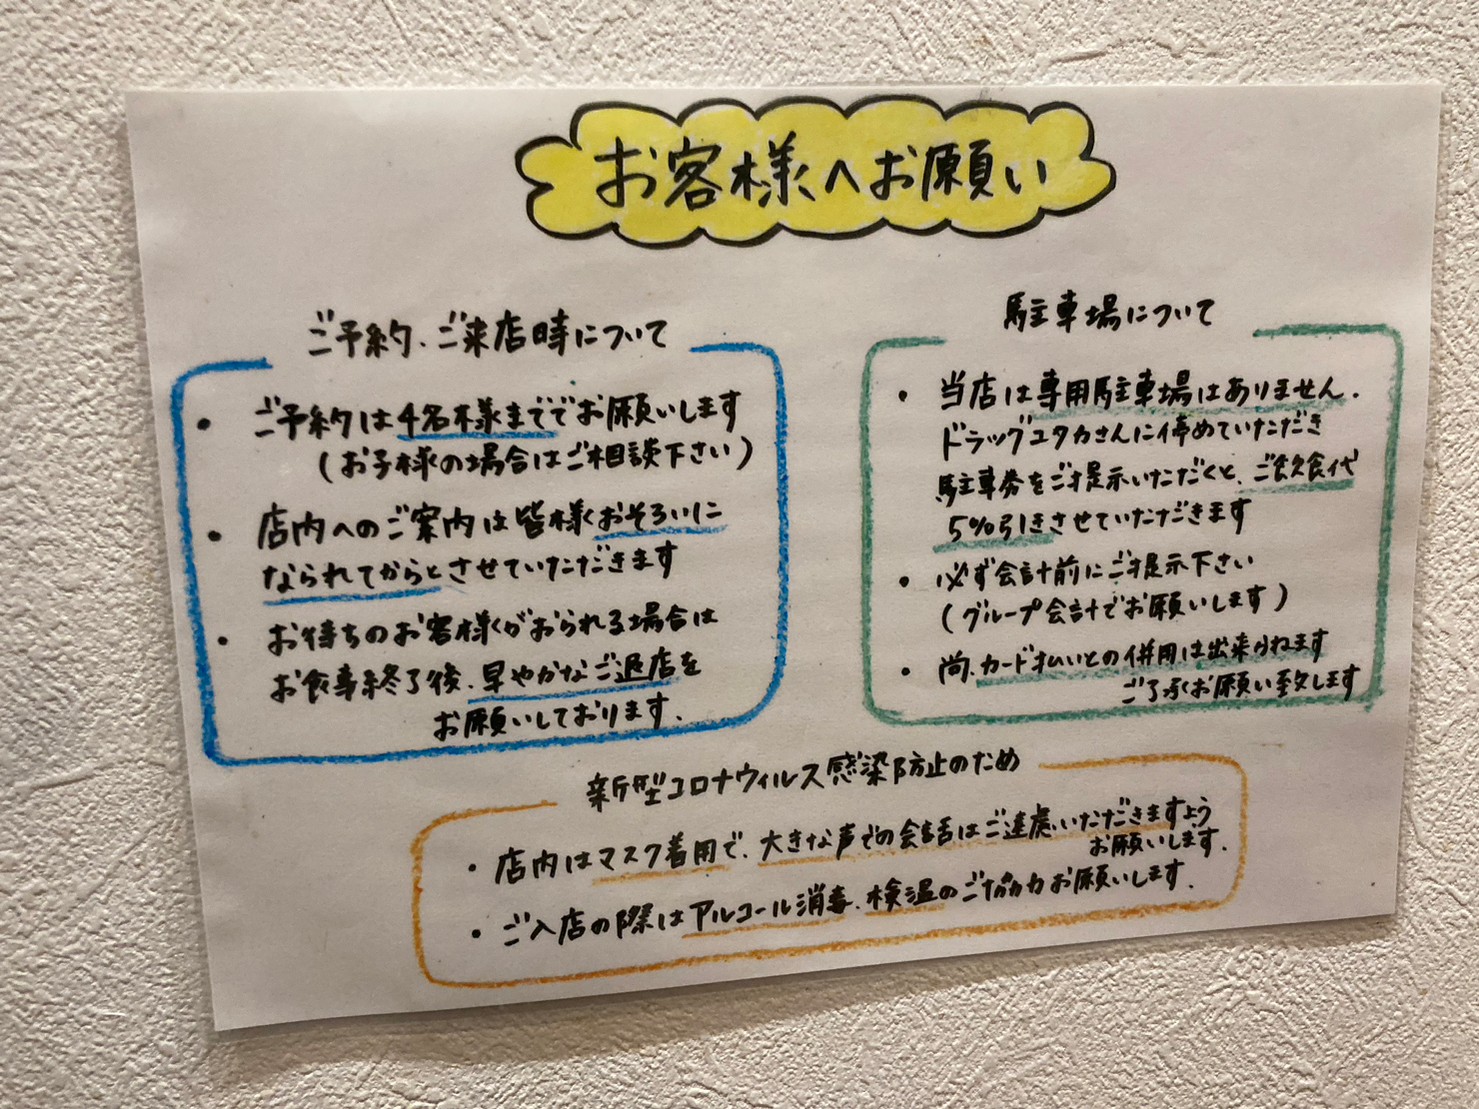 お客様へお願い
ご予約、ご来店時について
・ご予約は4名様まででお願いします
(お子様の場合はご相談下さい)
・店内へのご案内は皆様おそろいに
なられてからとさせていただきます
・お待ちのお客様がおられる場合は
お食事終了後、早やかなご退店を
お願いしております.
駐車場について
・当店は専用駐車場はありません.
ドラッグユタカさんに停めていただき
駐車券をご提示いただくと、ご飲食代
5%引きさせていただきます
・必ず会計前にご提示下さい
(グループ会計でお願いします)
・尚、カード払いとの併用は出来かねます
ご了承くお願い致します
新型コロナウィルス感染防止のため
・店内はマスク着用で、大きな声での会話はご遠慮いただきますよう
お願いします.
・ご入店の際はアルコール消毒、検温のご協力お願いします.